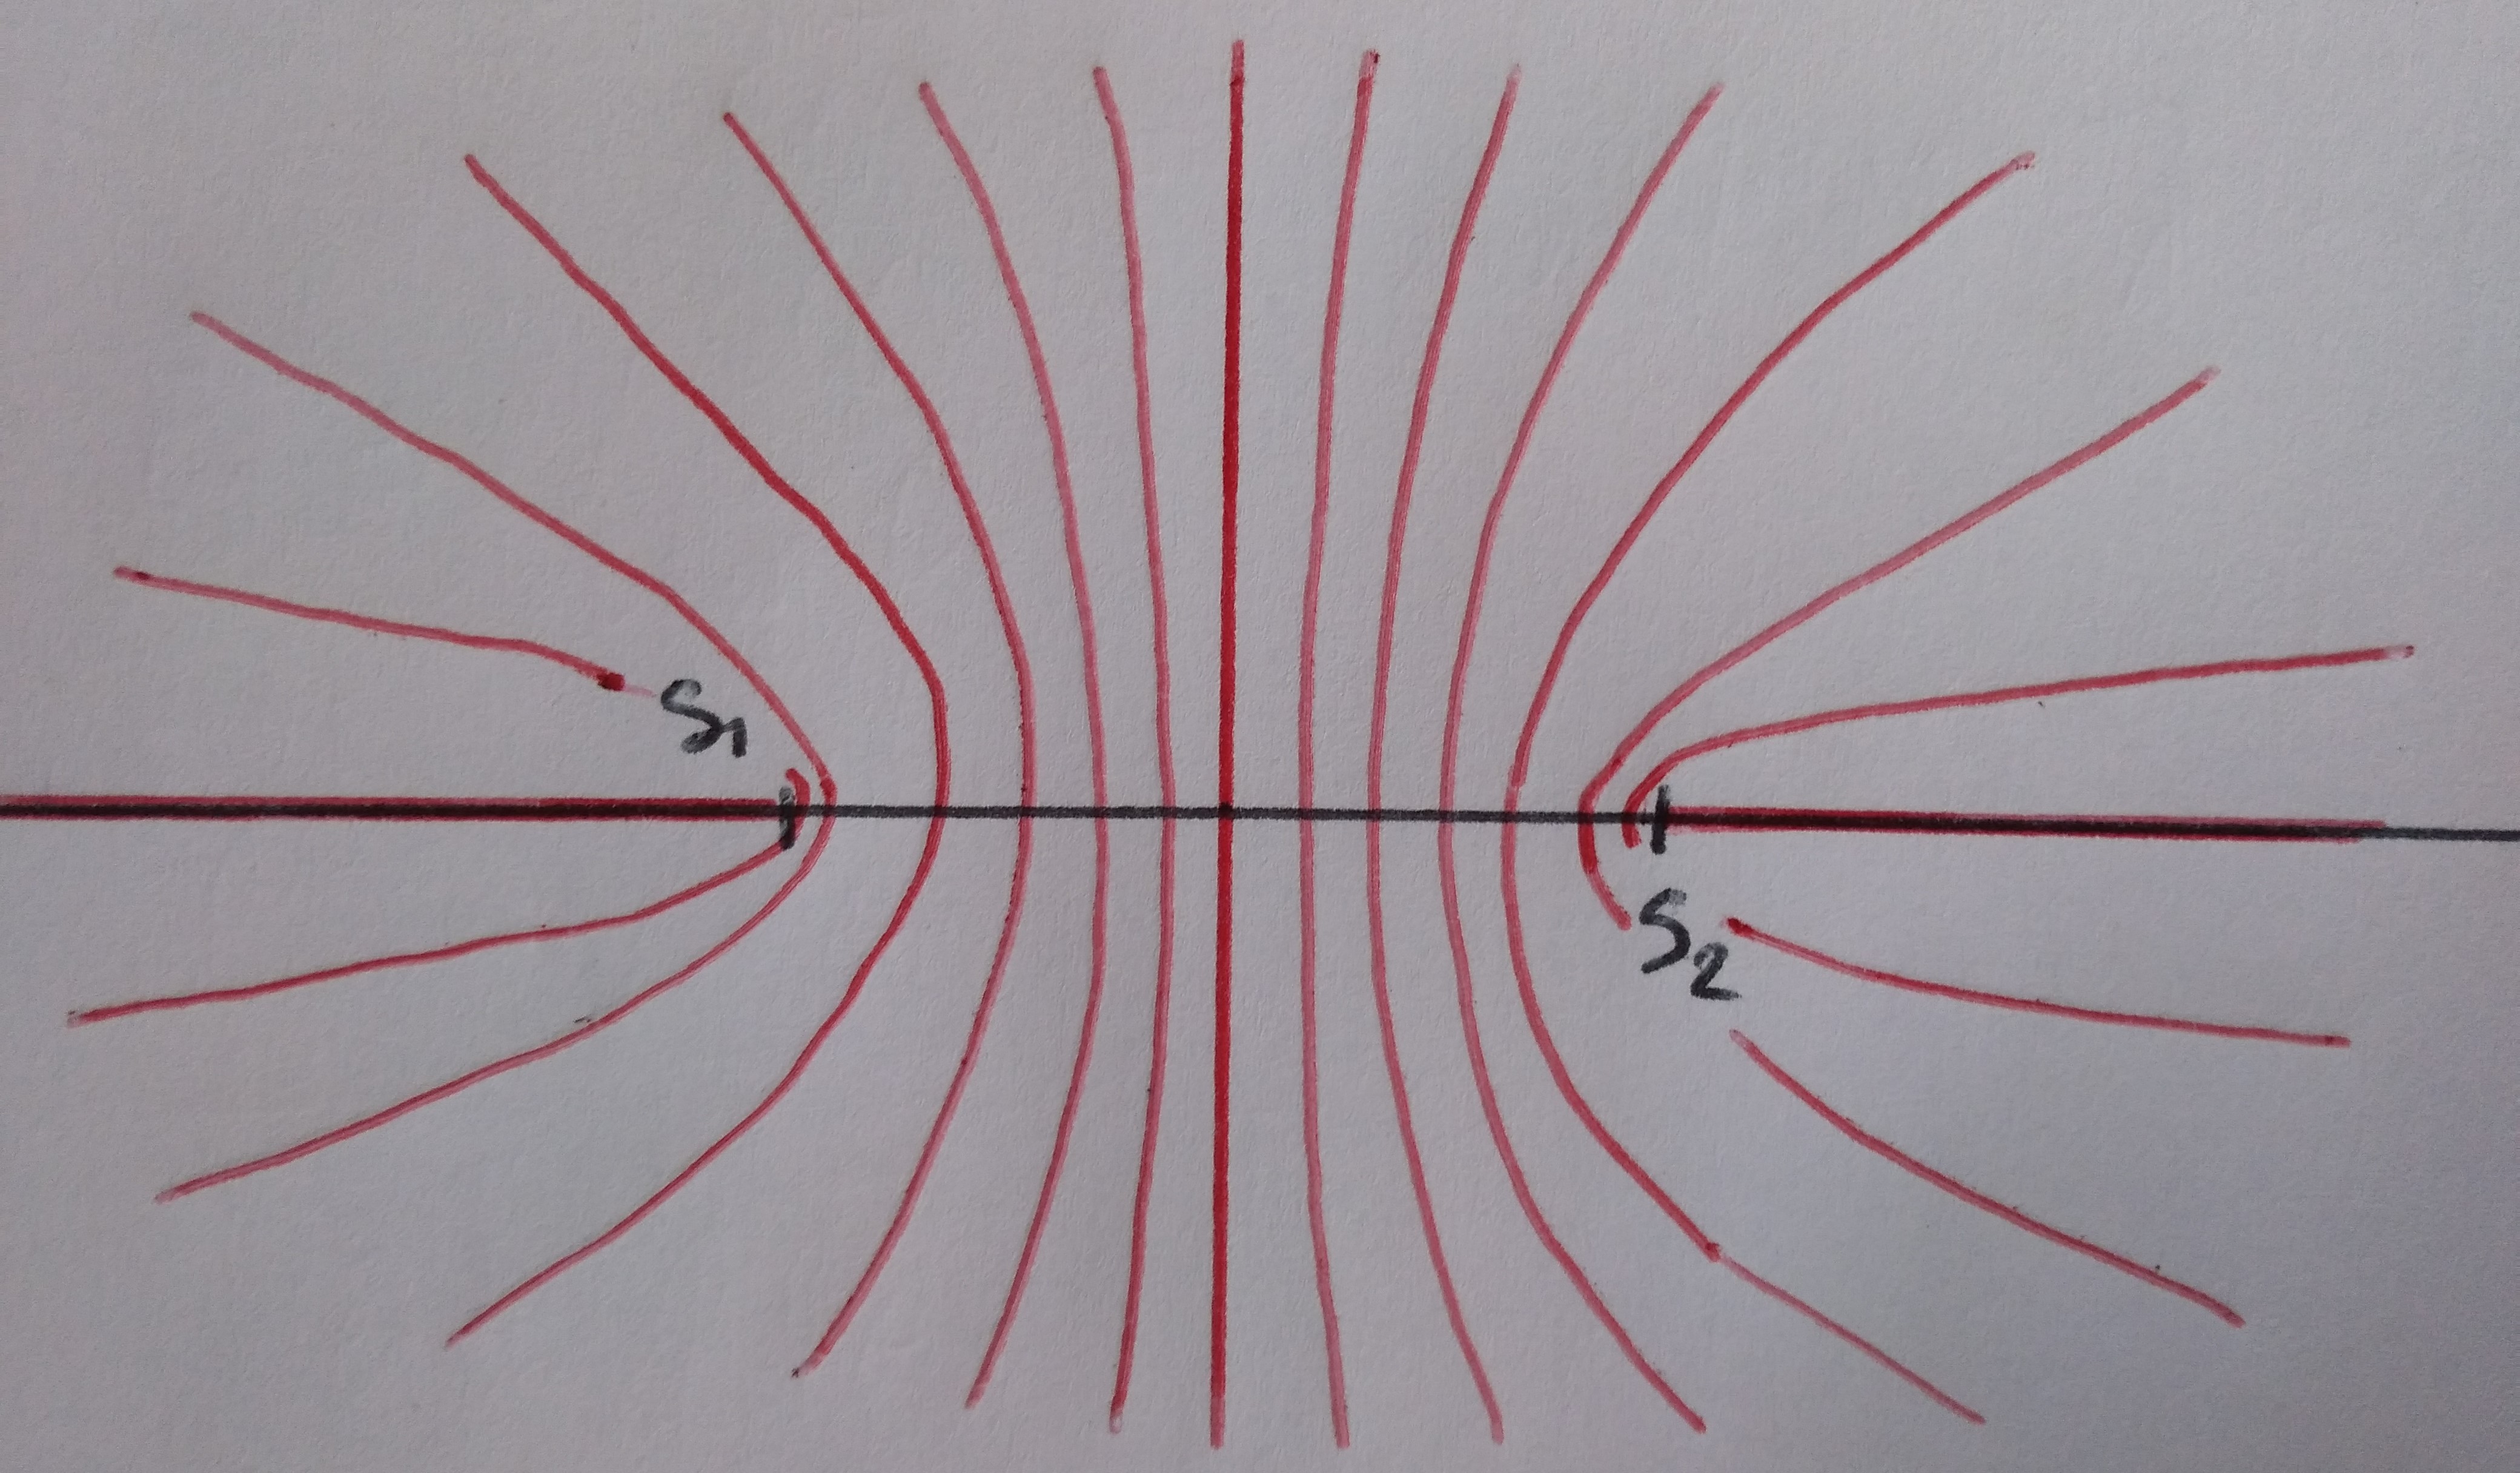 S1
S2